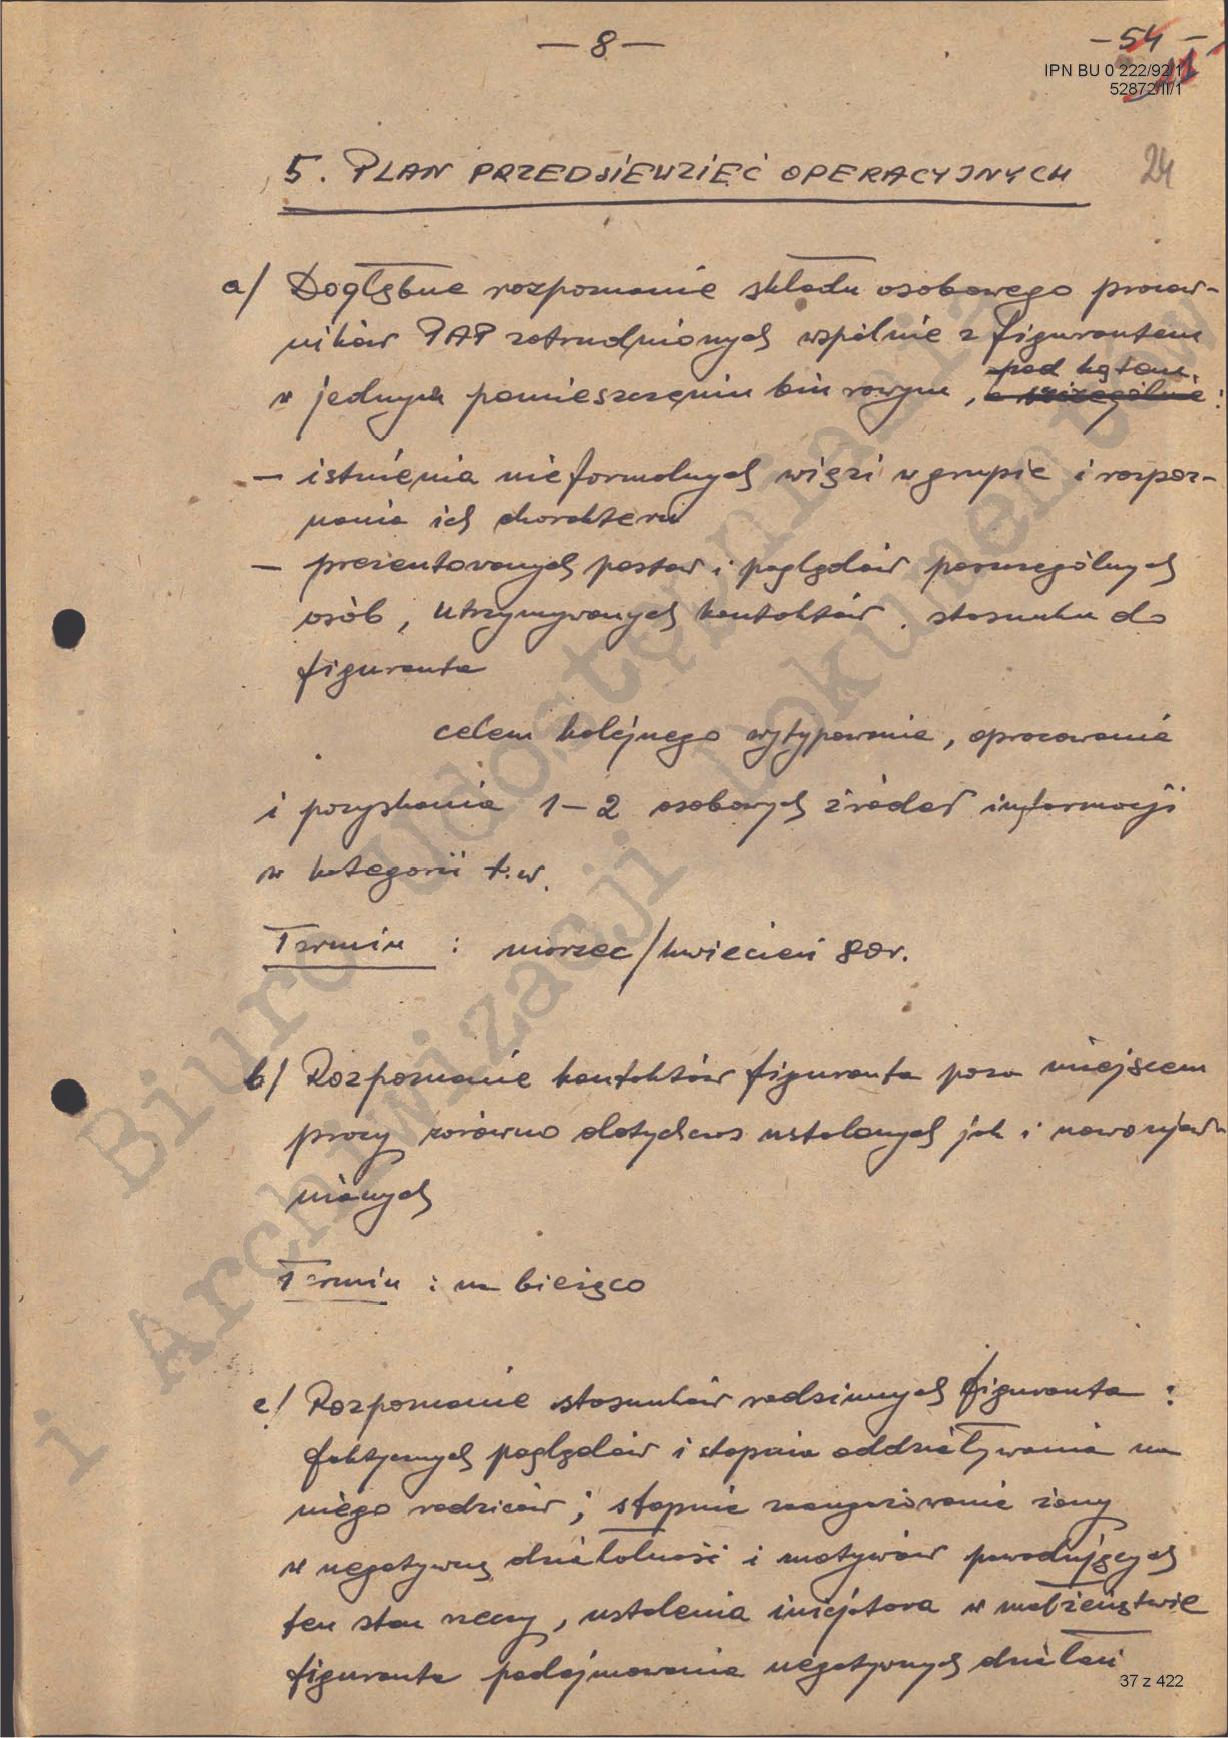 — 8 —
– 54 –
IPN BU 0 222/92/1
52872/II/1
24
5. PLAN PRZEDSIEWZIĘĆ OPERACYJNYCH
a/ Dogłębne rozpoznanie składu osobowego pracow-
ników PAP zatrudnionych wspólnie z figurantem
pod kątem
w jednym pomieszczeniu biurowym, a szczególnie :
– istnienia nieformalnych więzi w grupie i rozpoz-
nania ich charakteru
– prezentowanych postaw i poglądów poszczególnych
osób, utrzymywanych kontaktów, stosunku do
figuranta
celem kolejnego wytypowania, opracowania
i pozyskania 1–2 osobowych źródeł informacji
w kategorii t.w.
Termin : marzec/kwiecień 80r.
b/ Rozpoznanie kontaktów figuranta poza miejscem
pracy zarówno dotychczas ustalonych jak i nowoujaw
nianych
Termin : na bieżąco
c/ Rozpoznanie stosunków rodzinnych figuranta :
faktycznych poglądów i stopnia oddziaływania na
niego rodziców ; stopnia zaangażowania żony
w negatywną działalność i motywów powodujących
ten stan rzeczy, ustalenia inicjatora w małżeństwie
figuranta podejmowania negatywnych działań
37 z 422
Biuro Udostępniania
i Archiwizacji Dokumentów